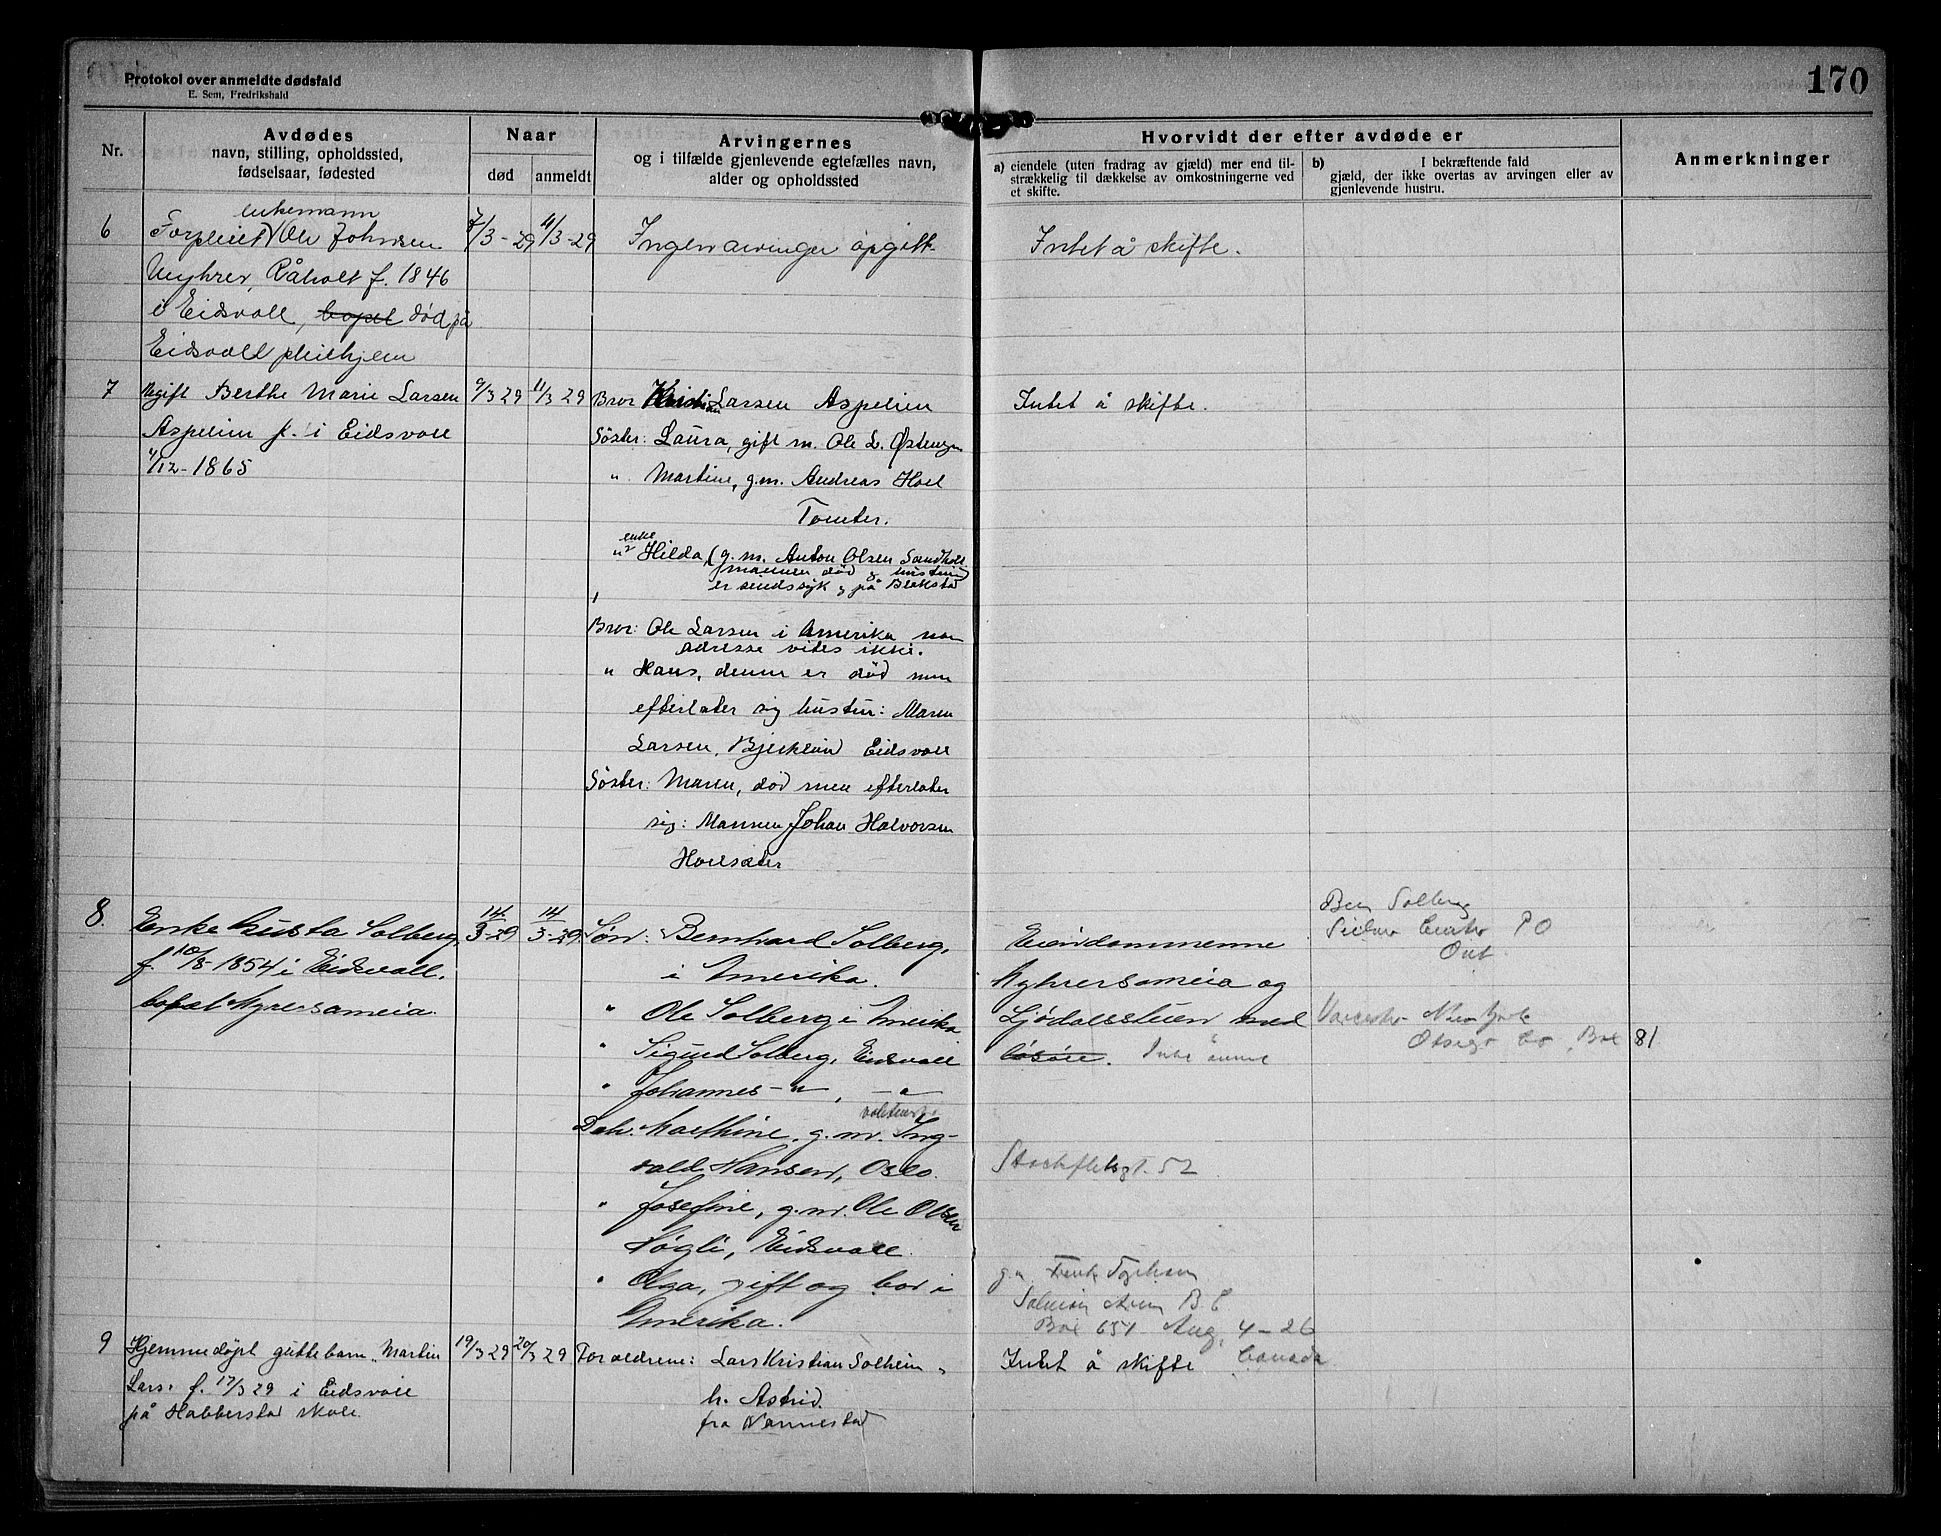 Protokol over anmeldte dødsfald
E. Sem, Fredrikshald
170
Nr.
Avdødes
navn, stilling, opholdssted,
fødselsaar, fødested
Naar
død
anmeldt
Arvingernes
og i tilfælde gjenlevende egtefælles navn,
alder og opholdssted
Hvorvidt der efter avdøde er
a) eiendele (uten fradrag av gjæld) mer end til-
strækkelig til dækkelse av omkostningerne ved
et skifte.
b) I bekræftende fald
gjæld, der ikke overtas av arvingen eller av
gjenlevende hustru.
Anmerkninger
6
enkemann
Forpleiet Ole Johnsen
Råholt f. 1846
i Eidsvoll, bopel død på
Eidsvold pleiehjem
7/3-29
11/3-29
Ingen arvinger opgitt
Intet å skifte.
7
Ugift Berthe Marie Larsen
Aspelien f. i Eidsvoll
4/12-1865
9/3 29
11/3 29
Bror Kristian Larsen Aspelien
Søster: Laura, gift m. Ole L. Østengen
" Martine, g.m. Andreas Hoel
Tomter.
enke
" Hilda, (g.m. Anton Olsen Sandholt
mannen død og hustruen
er sindssyk og på Blakstad
Bror: Ole Larsen i Amerika
adresse vites ikke.
" Hans, denne er død men
efterlater sig hustru: Maren
Larsen, Eidsvoll
Søster: Maren, død men efterlater
sig: Mannen Johan Halvorsen
Intet å skifte.
8.
Enke Gusta Solberg,
f. 10/8-1854 i Eidsvoll.
bopæl Myrersameia.
14/3-29
14/3-29
Søn: Bernhard Solberg,
i Amerika.
" Ole Solberg i Amerika
" Sigurd Solberg, Eidsvoll
" Johannes -"-, -"-
Dat. Mathine, g.m. Ing-
vald Hansen, Oslo.
" Josefine, g.m. Ole Olsen
Høgli, Eidsvoll.
" Olga, gift og bor i
Amerika.
Eiendommenne
og
Ljødalsstuen med
løsøre. Intet annet
Ben Solberg
P O
Ont.
Worcester New York
Otsego Co Box 81
52
g.m. Frank
Salmon Arm B.C
Box 654 Aug. 4-26
Canada
9
Hjemmedøpt guttebarn Martin
Lars. f. 17/3 29 i Eidsvoll
på Habberstad skole.
19/3 29
20/3 29
Foreldrene: Lars Kristian Solheim
h. Astrid
fra Nannestad
Intet å skifte